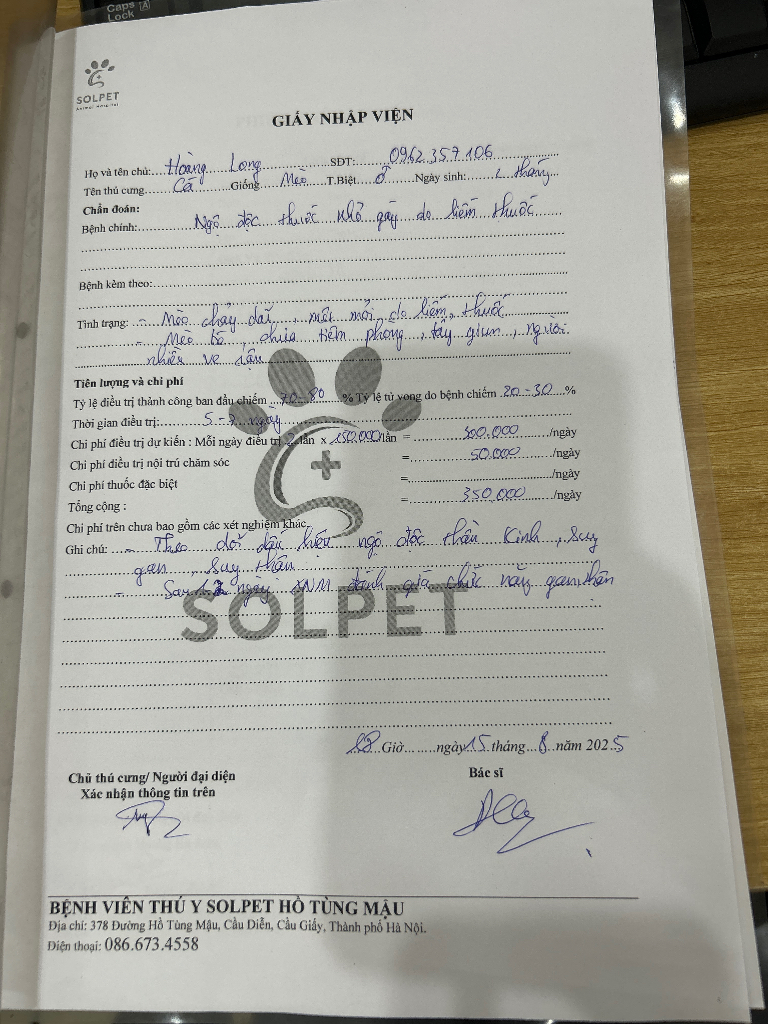 Caps Lock A
SOLPET
Animal Hospital
GIẤY NHẬP VIỆN
Họ và tên chủ: Hoàng Long SĐT: 0962.357.106
Tên thú cưng Cá Giống Mèo T.Biệt ♂ Ngày sinh: 2 tháng
Chẩn đoán:
Bệnh chính: Ngộ độc thuốc nhỏ gáy do liếm thuốc
Bệnh kèm theo:
Tình trạng: - Mèo chảy dãi, mệt mỏi, do liếm thuốc
- Mèo bé, chưa tiêm phòng, tẩy giun, người
nhiều ve rận
Tiên lượng và chi phí
Tỷ lệ điều trị thành công ban đầu chiếm 70-80 % Tỷ lệ tử vong do bệnh chiếm 20-30 %
Thời gian điều trị: 5-7 ngày
Chi phí điều trị dự kiến : Mỗi ngày điều trị 2 lần x 150.000 lần = 300.000 /ngày
Chi phí điều trị nội trú chăm sóc = 50.000 /ngày
Chi phí thuốc đặc biệt = /ngày
Tổng cộng : = 350.000 /ngày
Chi phí trên chưa bao gồm các xét nghiệm khác
Ghi chú: - Theo dõi dấu hiệu ngộ độc thần kinh, suy
gan, suy thận
- Sau ngày XNM đánh giá chức năng gan thận
SOLPET
18 Giờ ngày 15 tháng 8 năm 2025
Chủ thú cưng/ Người đại diện
Xác nhận thông tin trên
Bác sĩ
BỆNH VIỆN THÚ Y SOLPET HỒ TÙNG MẬU
Địa chỉ: 378 Đường Hồ Tùng Mậu, Cầu Diễn, Cầu Giấy, Thành phố Hà Nội.
Điện thoại: 086.673.4558